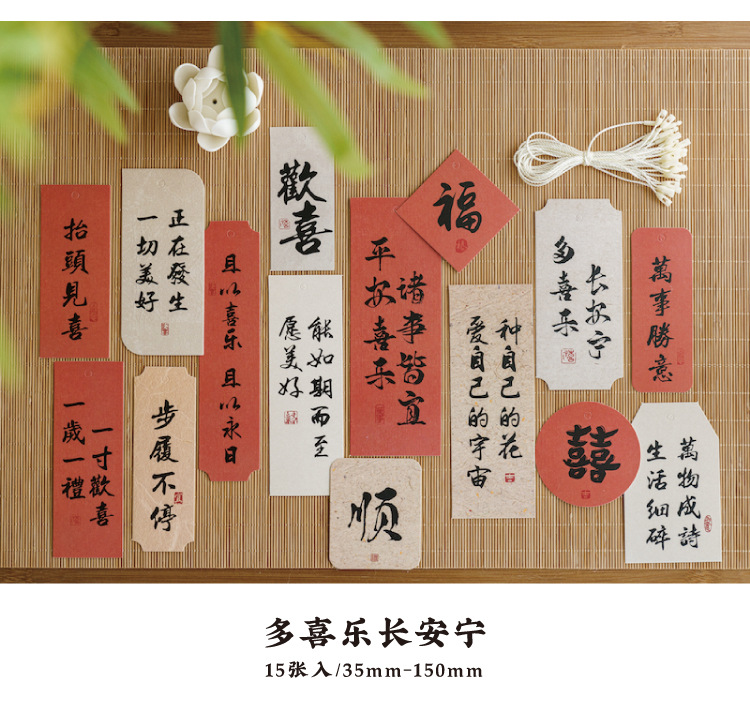 抬頭見喜
一切美好
正在發生
且以喜乐 且以永日
歡喜
平安喜乐
諸事皆宜
福
多喜乐
长安宁
萬事勝意
一歲一禮
一寸歡喜
步履不停
愿美好
能如期而至
順
爱自己的宇宙
种自己的花
囍
生活细碎
萬物成詩
多喜乐长安宁
15张入/35mm-150mm